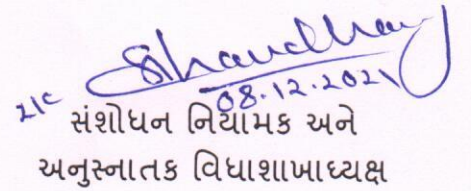 Shaudhary
08.12.2021
સંશોધન નિયામક અને
અનુસ્નાતક વિધાશાખાધ્યક્ષ